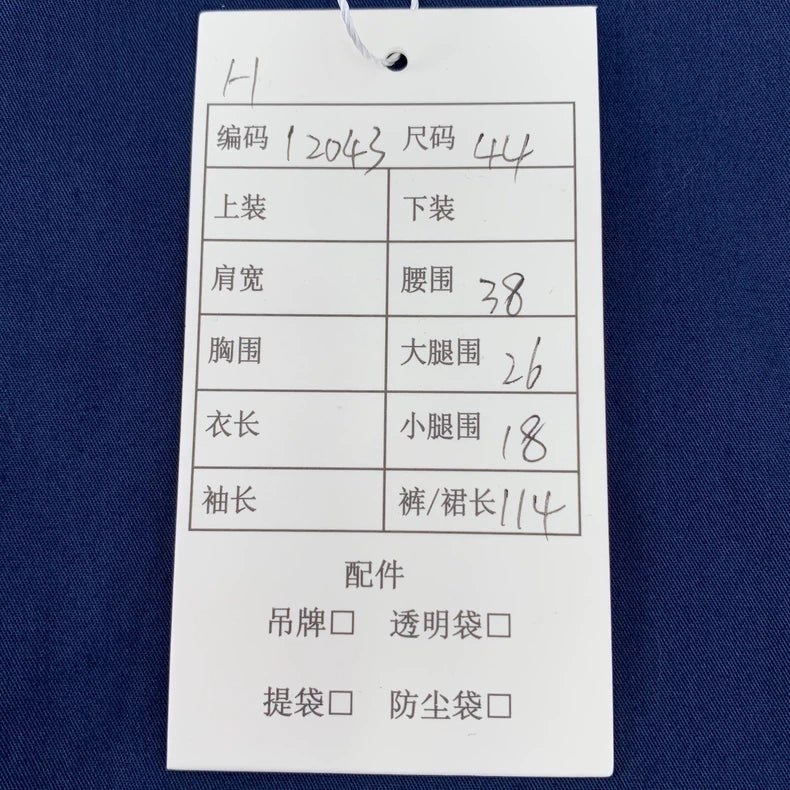 H
编码 12043 尺码 44
上装 下装
肩宽 腰围 38
胸围 大腿围 26
衣长 小腿围 18
袖长 裤/裙长 114
配件
吊牌□ 透明袋□
提袋□ 防尘袋□